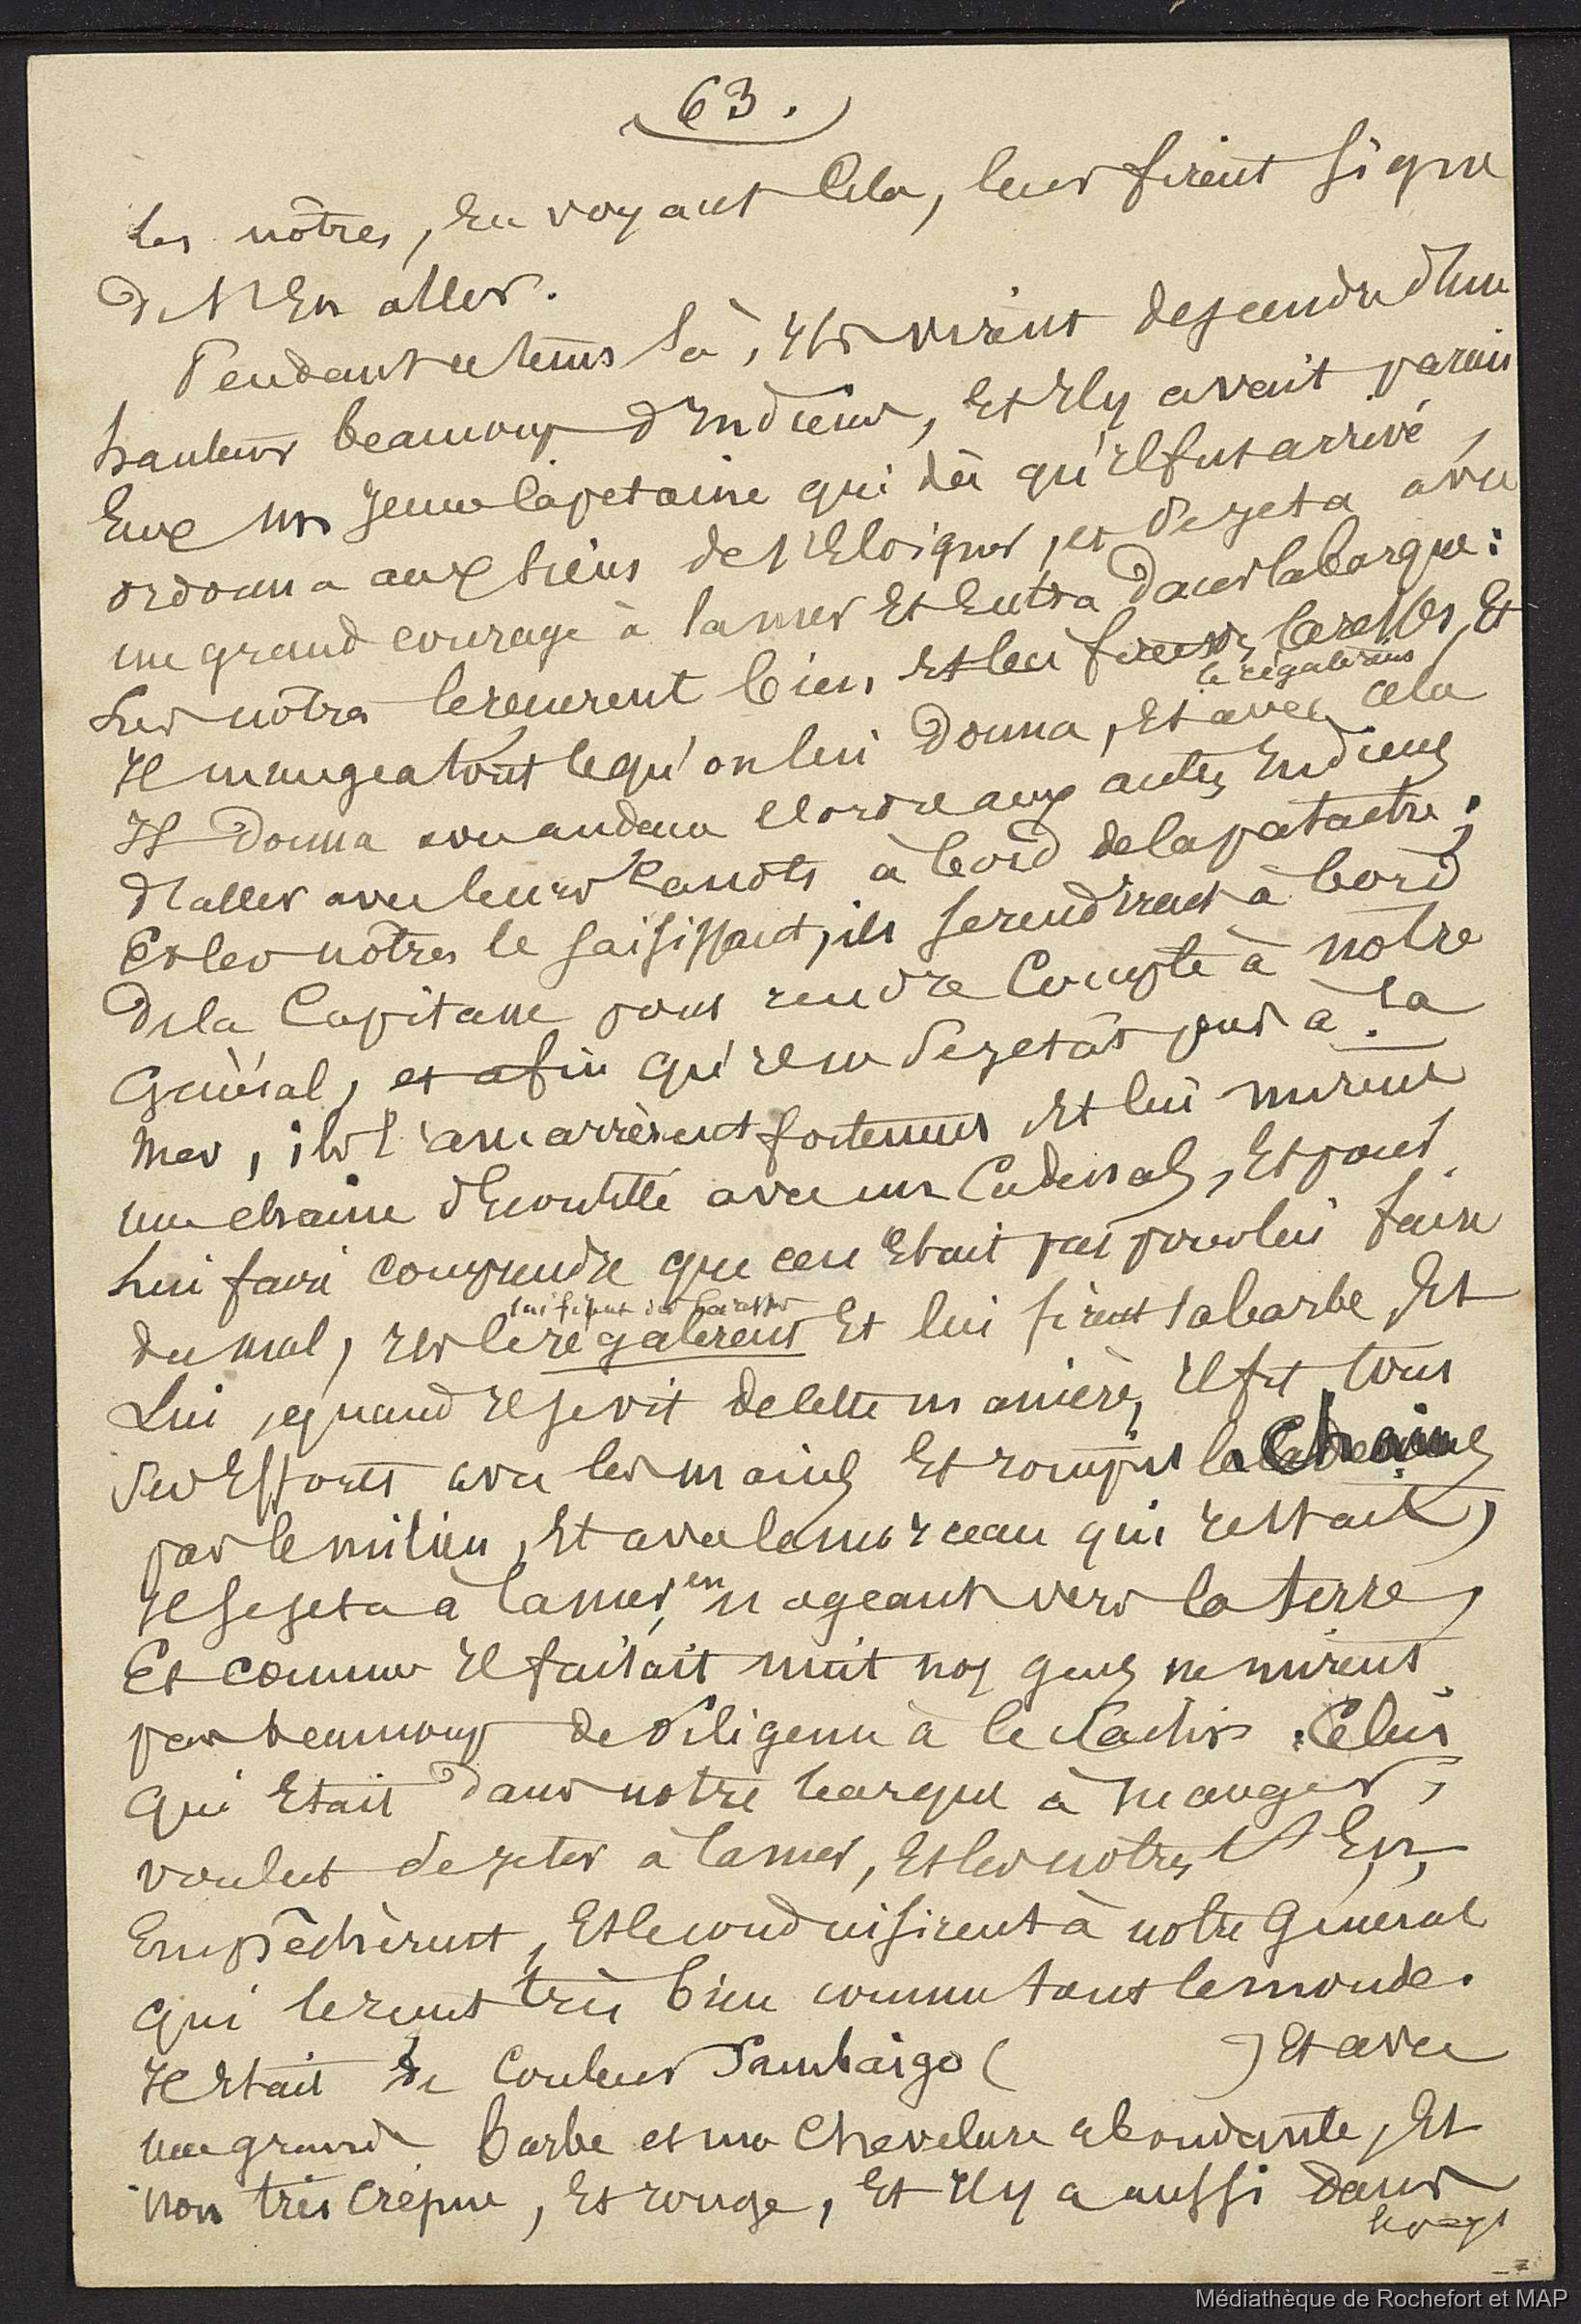 63.
Les nôtres, En voyant Cela, leur firent signe
de s'En aller.
Pendant ce tems là, Ils virent descendre d'une
hauteur beaucoup d'Indiens, Et Il y avait parmi
Eux un Jeune Capitaine qui dès qu'Il fut arrivé,
ordonna aux siens de s'Eloigner, et se jeta avec
un grand courage à la mer Et Entra Dans la barque:
Les nôtres le reçurent bien, Et lui firent Caresses, Et
le régalèrent
Il mangea tout ce qu'on lui Donna, Et avec cela
Il Donna l'ordre aux autres Indiens
d'aller avec leurs Canots à bord de la patache;
Et les nôtres le saisissant, ils se rendirent à bord
De la Capitane pour rendre Compte à notre
Général, et afin qu'Il ne se jetât pas à la
mer, ils l'amarrèrent fortement Et lui mirent
une chaine d'Ecoutille avec un Cadenas, Et pour
Lui faire comprendre que ce n'Etait pas pour lui faire
lui firent des caresses
du mal, Ils le régalèrent Et lui firent la barbe, Et
Lui, quand Il se vit de cette manière, Il fit tous
ses Efforts avec les mains Et rompit la Chaine
par le milieu, Et avec le morceau qui restait,
Il se jeta à la mer, en nageant vers la terre,
Et comme Il faisait nuit nos gens ne mirent
pas beaucoup de diligence à le chercher. Celui
Qui Etait Dans notre barque à manger,
voulut se jeter à la mer, Et les nôtres l'En
Empêchèrent, Et le conduisirent à notre Général
qui le reçut très bien comme tout le monde.
Il Etait de Couleur Sambaigo ( ) Et avec
une grande barbe et une Chevelure abondante, Et
non très Crépue, Et rouge, Et Il y a aussi Dans